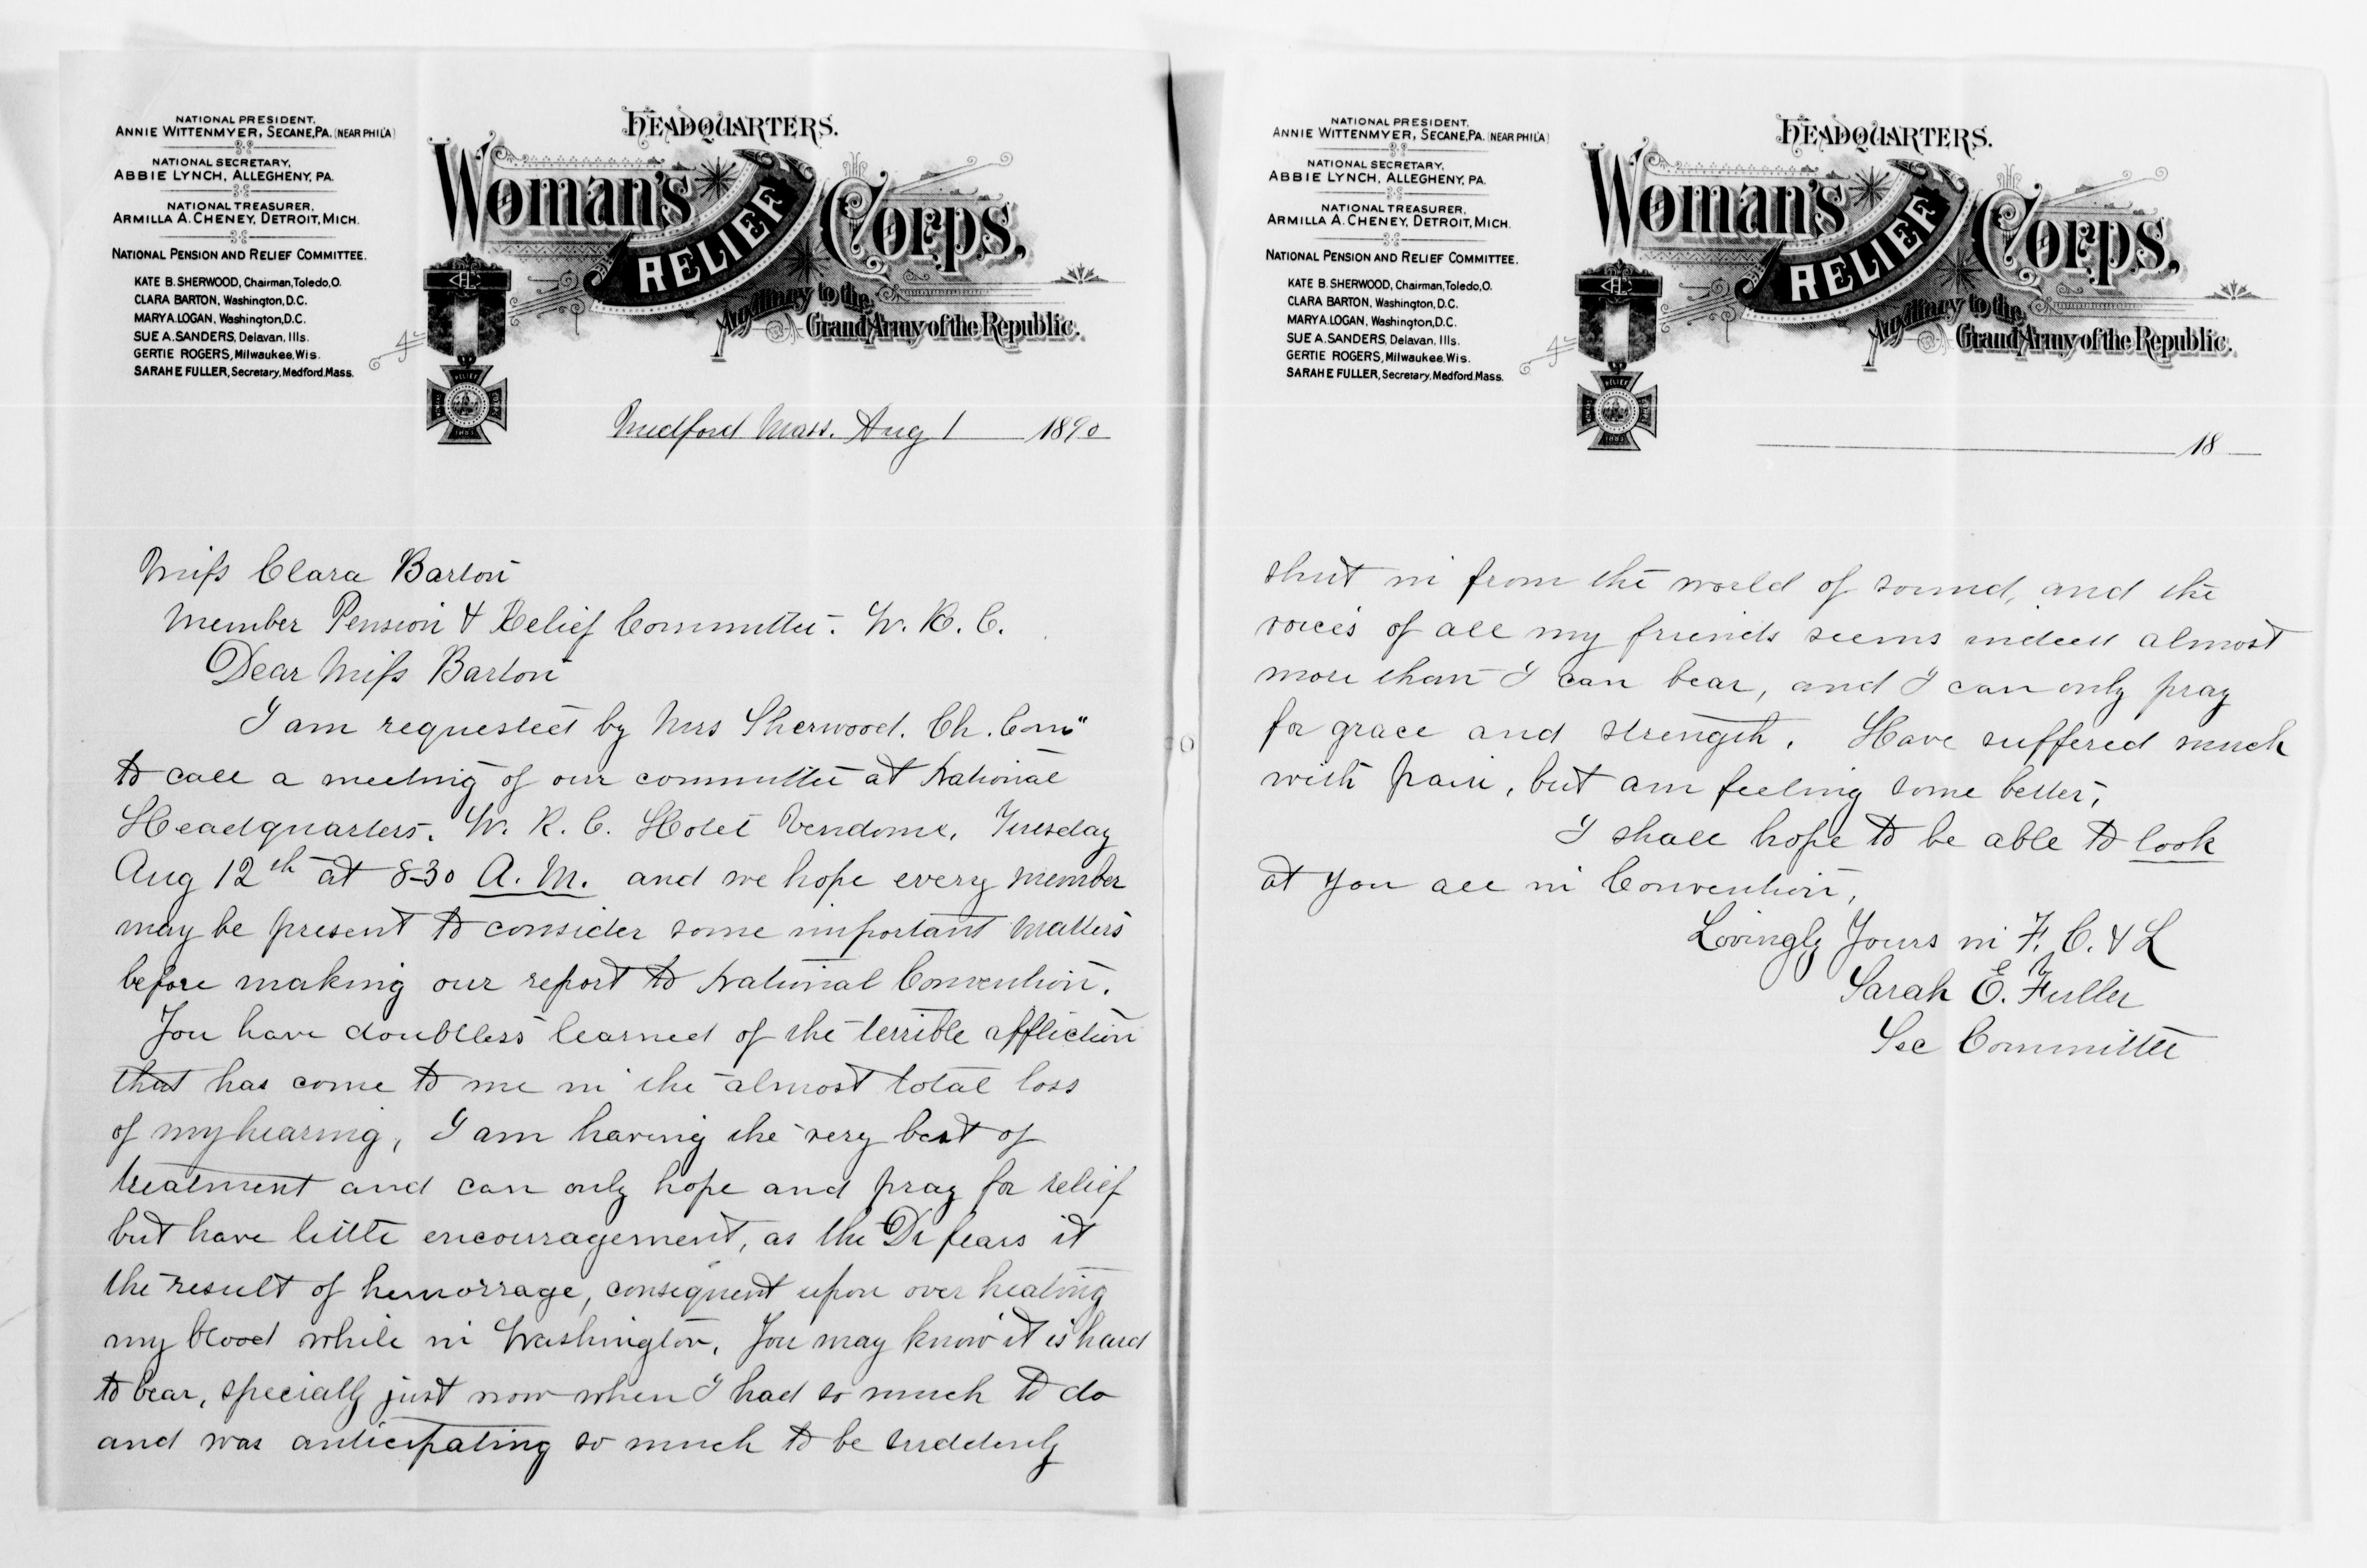 NATIONAL PRESIDENT,
ANNIE WITTENMYER, SECANE, PA. (NEAR PHIL'A)
NATIONAL SECRETARY,
ABBIE LYNCH, ALLEGHENY, PA.
NATIONAL TREASURER,
ARMILLA A. CHENEY, DETROIT, MICH.
NATIONAL PENSION AND RELIEF COMMITTEE.
KATE B. SHERWOOD, Chairman, Toledo, O.
CLARA BARTON, Washington, D.C.
MARY A. LOGAN, Washington, D.C.
SUE A. SANDERS, Delavan, Ills.
GERTIE ROGERS, Milwaukee, Wis.
SARAH E FULLER, Secretary, Medford, Mass.
HEADQUARTERS.
Woman's RELIEF Corps,
Auxiliary to the
Grand Army of the Republic.
RELIEF
1883
Medford Mass. Aug 1 1890
Miss Clara Barton
Member Pension & Relief Committee. W. R. C.
Dear Miss Barton
I am requested by Mrs Sherwood. Ch. Com"
to call a meeting of our committee at National
Headquarters. W. R. C. Hotel Vendome, Tuesday
Aug 12th at 8-30 A. M. and we hope every member
may be present to consider some important matters
before making our report to National Convention.
You have doubtless learned of the terrible affliction
that has come to me in the almost total loss
of my hearing, I am having the very best of
treatment and can only hope and pray for relief
but have little encouragement, as the Dr fears it
the result of hemorrage, consequent upon over heating
my blood while in Washington, You may know it is hard
to bear, specially just now when I had so much to do
and was anticipating so much to be suddenly
NATIONAL PRESIDENT,
ANNIE WITTENMYER, SECANE, PA. (NEAR PHIL'A)
NATIONAL SECRETARY,
ABBIE LYNCH, ALLEGHENY, PA.
NATIONAL TREASURER,
ARMILLA A. CHENEY, DETROIT, MICH.
NATIONAL PENSION AND RELIEF COMMITTEE.
KATE B. SHERWOOD, Chairman, Toledo, O.
CLARA BARTON, Washington, D.C.
MARY A. LOGAN, Washington, D.C.
SUE A. SANDERS, Delavan, Ills.
GERTIE ROGERS, Milwaukee, Wis.
SARAH E FULLER, Secretary, Medford, Mass.
HEADQUARTERS.
Woman's RELIEF Corps,
Auxiliary to the
Grand Army of the Republic.
RELIEF
1883
18
shut in from the world of sound, and the
voices of all my friends seems indeed almost
more than I can bear, and I can only pray
for grace and strength. Have suffered much
with pain, but am feeling some better,
I shall hope to be able to look
at you all in Convention,
Lovingly Yours in F. C. & L
Sarah E. Fuller
Sec Committee